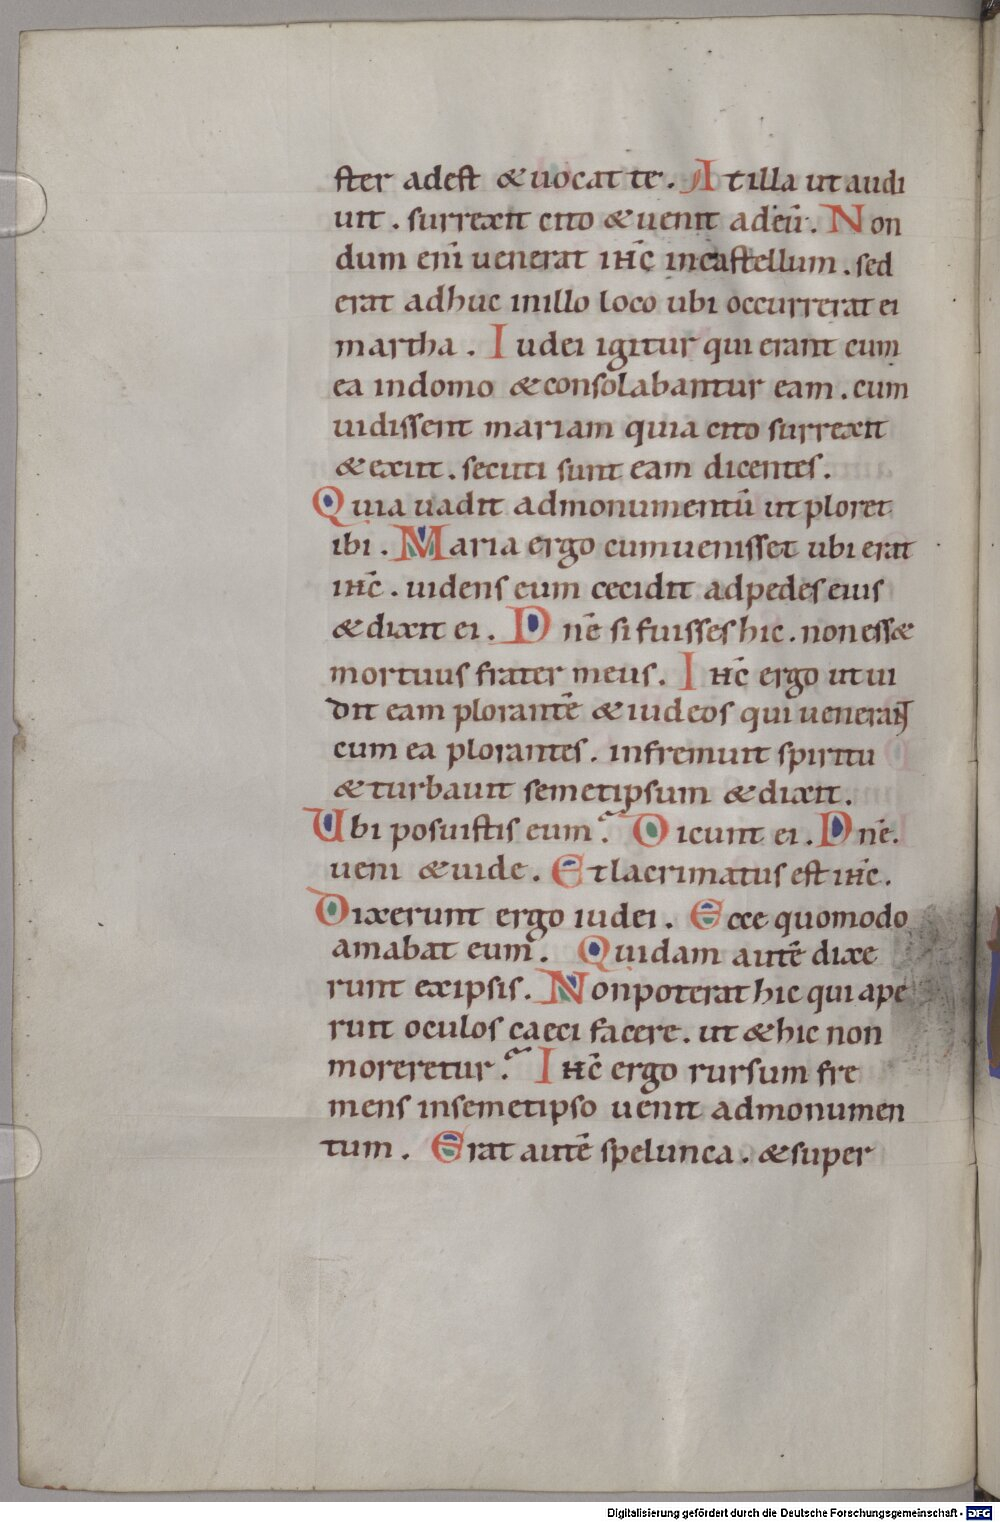 ster adest & uocat te. At illa ut audi
uit. surrexit cito & uenit ad eū. Non
dum enī uenerat ihc̄ incastellum. sed
erat adhuc inillo loco ubi occurrerat ei
martha. Iudei igitur qui erant cum
ea indomo & consolabantur eam. cum
uidissent mariam quia cito surrexit
& exiit. secuti sunt eam dicentes.
Quia uadit admonumentū ut ploret
ibi. Maria ergo cumuenisset ubi erat
ihc̄. uidens eum cecidit adpedes eius
& dixit ei. Dnē si fuisses hic. non ess&
mortuus frater meus. Ihc̄ ergo ut ui
dit eam plorantē & iudeos qui uenerant
cum ea plorantes. infremuit spiritu
& turbauit semetipsum & dixit.
Ubi posuistis eum? Dicunt ei. Dnē.
ueni & uide. Et lacrimatus est ihc̄.
Dixerunt ergo iudei. Ecce quomodo
amabat eum. Quidam autē dixe
runt exipsis. Nonpoterat hic qui ape
ruit oculos caeci facere. ut & hic non
moreretur? Ihc̄ ergo rursum fre
mens insemetipso uenit admonumen
tum. Erat autē spelunca. & super
Digitalisierung gefördert durch die Deutsche Forschungsgemeinschaft - DFG